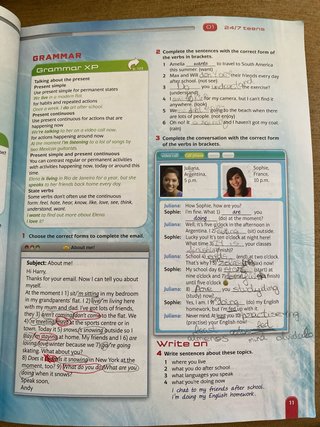 01 24/7 teens
GRAMMAR
Grammar XP
Talking about the present
Present simple
Use present simple for permanent states
We live in a modern flat.
for habits and repeated actions
Once a week, I do art after school.
Present continuous
Use present continuous for actions that are
happening now
We're talking to her on a video call now.
for actions happening around now
At the moment I'm listening to a lot of songs by
Present simple and present continuous
You can contrast regular or permanent activities
with activities happening now, today or around this
time.
Elena is living in Rio de Janeiro for a year, but she
speaks to her friends back home every day.
State verbs
Some verbs don't often use the continuous
form: feel, hate, hear, know, like, love, see, think,
understand, want.
I want to find out more about Elena.
I love it!
1 Choose the correct forms to complete the email.
About me!
Subject: About me!
Hi Harry,
Thanks for your email. Now I can tell you about
myself.
At the moment I 1) sit/'m sitting in my bedroom
in my grandparents' flat. I 2) live/'m living here
with my mum and dad. I've got lots of friends,
they 3) aren't coming/don't come to the flat. We
4) 're meeting/meet at the sports centre or in
town. Today it 5) snows/'s snowing outside so I
play/'m staying at home. My friends and I 6) are
loving/love winter because we 7) go/'re going
skating. What about you?
8) Does it snow/Is it snowing in New York at the
moment, too? 9) What do you do/What are you
doing when it snows?
Speak soon,
Andy
2 Complete the sentences with the correct form of
the verbs in brackets.
1 Amelia wants to travel to South America
this summer. (want)
2 Max and Will don't see their friends every day
after school. (not see)
3 Do you understand the exercise?
(understand)
4 I am looking for my camera, but I can't find it
anywhere. (look)
5 We going to the beach when there
are lots of people. (not enjoy)
6 Oh no! It and I haven't got my coat.
(rain)
3 Complete the conversation with the correct form
of the verbs in brackets.
Juliana,
Argentina,
5 p.m.
Sophie,
France,
10 p.m.
Juliana: How Sophie, how are you?
Sophie: I'm fine. What 1) are you
doing (do) at the moment?
Juliana: Well, it's five o'clock in the afternoon
(sit) outside.
Sophie: Lucky you! It's ten o'clock at night here.
What time is your classes
(finish)?
Juliana: School 4) (end) at two o'clock.
Sophie: My school day 6) (start) at
nine o'clock and 7)
until five o'clock
Juliana: 8) Are you studying
(study) now?
Sophie: Yes, I am. I 9) doing (do) my English
homework, but I'm fed up with it.
Juliana: Never mind. At least you
(practise) your English now!
Write on
4 Write sentences about these topics.
1 where you live
2 what you do after school
3 what languages you speak
4 what you're doing now
I chat to my friends after school.
I'm doing my English homework.
11